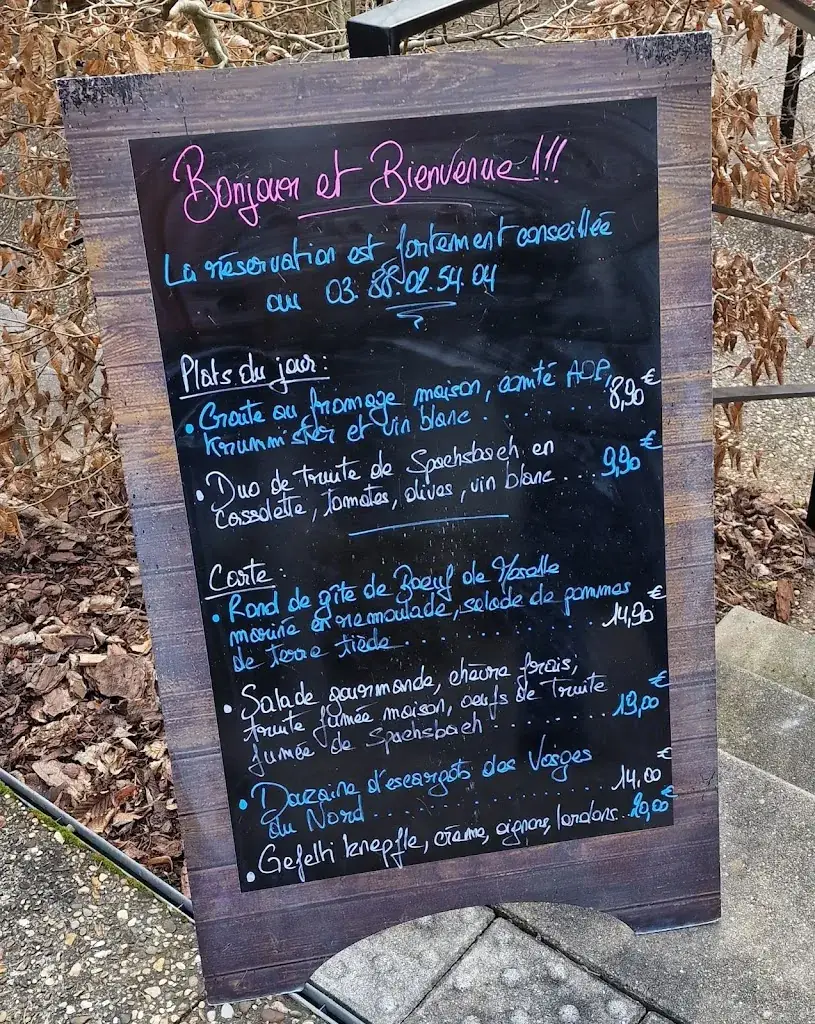 Bonjour et Bienvenue !!!
La réservation est fortement conseillée
au 03.88.02.54.04
Plats du jour :
• Croute au fromage maison, comté AOP,
Krumm'ster et vin blanc . . . . . . . 8,90€
• Duo de truite de Spachsbach en
Cassolette, tomates, olives, vin blanc ... 9,90€
Carte :
• Rond de gîte de Boeuf de Moselle
mariné en remoulade, salade de pommes
de terre tiède . . . . . . . . . . . . 14,90€
• Salade gourmande, chèvre frais,
truite fumée maison, oeufs de Truite
fumée de Spachsbach . . . . . . . . 19,00€
• Douzaine d'escargots des Vosges
du Nord . . . . . . . . . . . . . . . 14,00€
• Gefelti knepfle, crème, oignons, lardons .. 20,00€